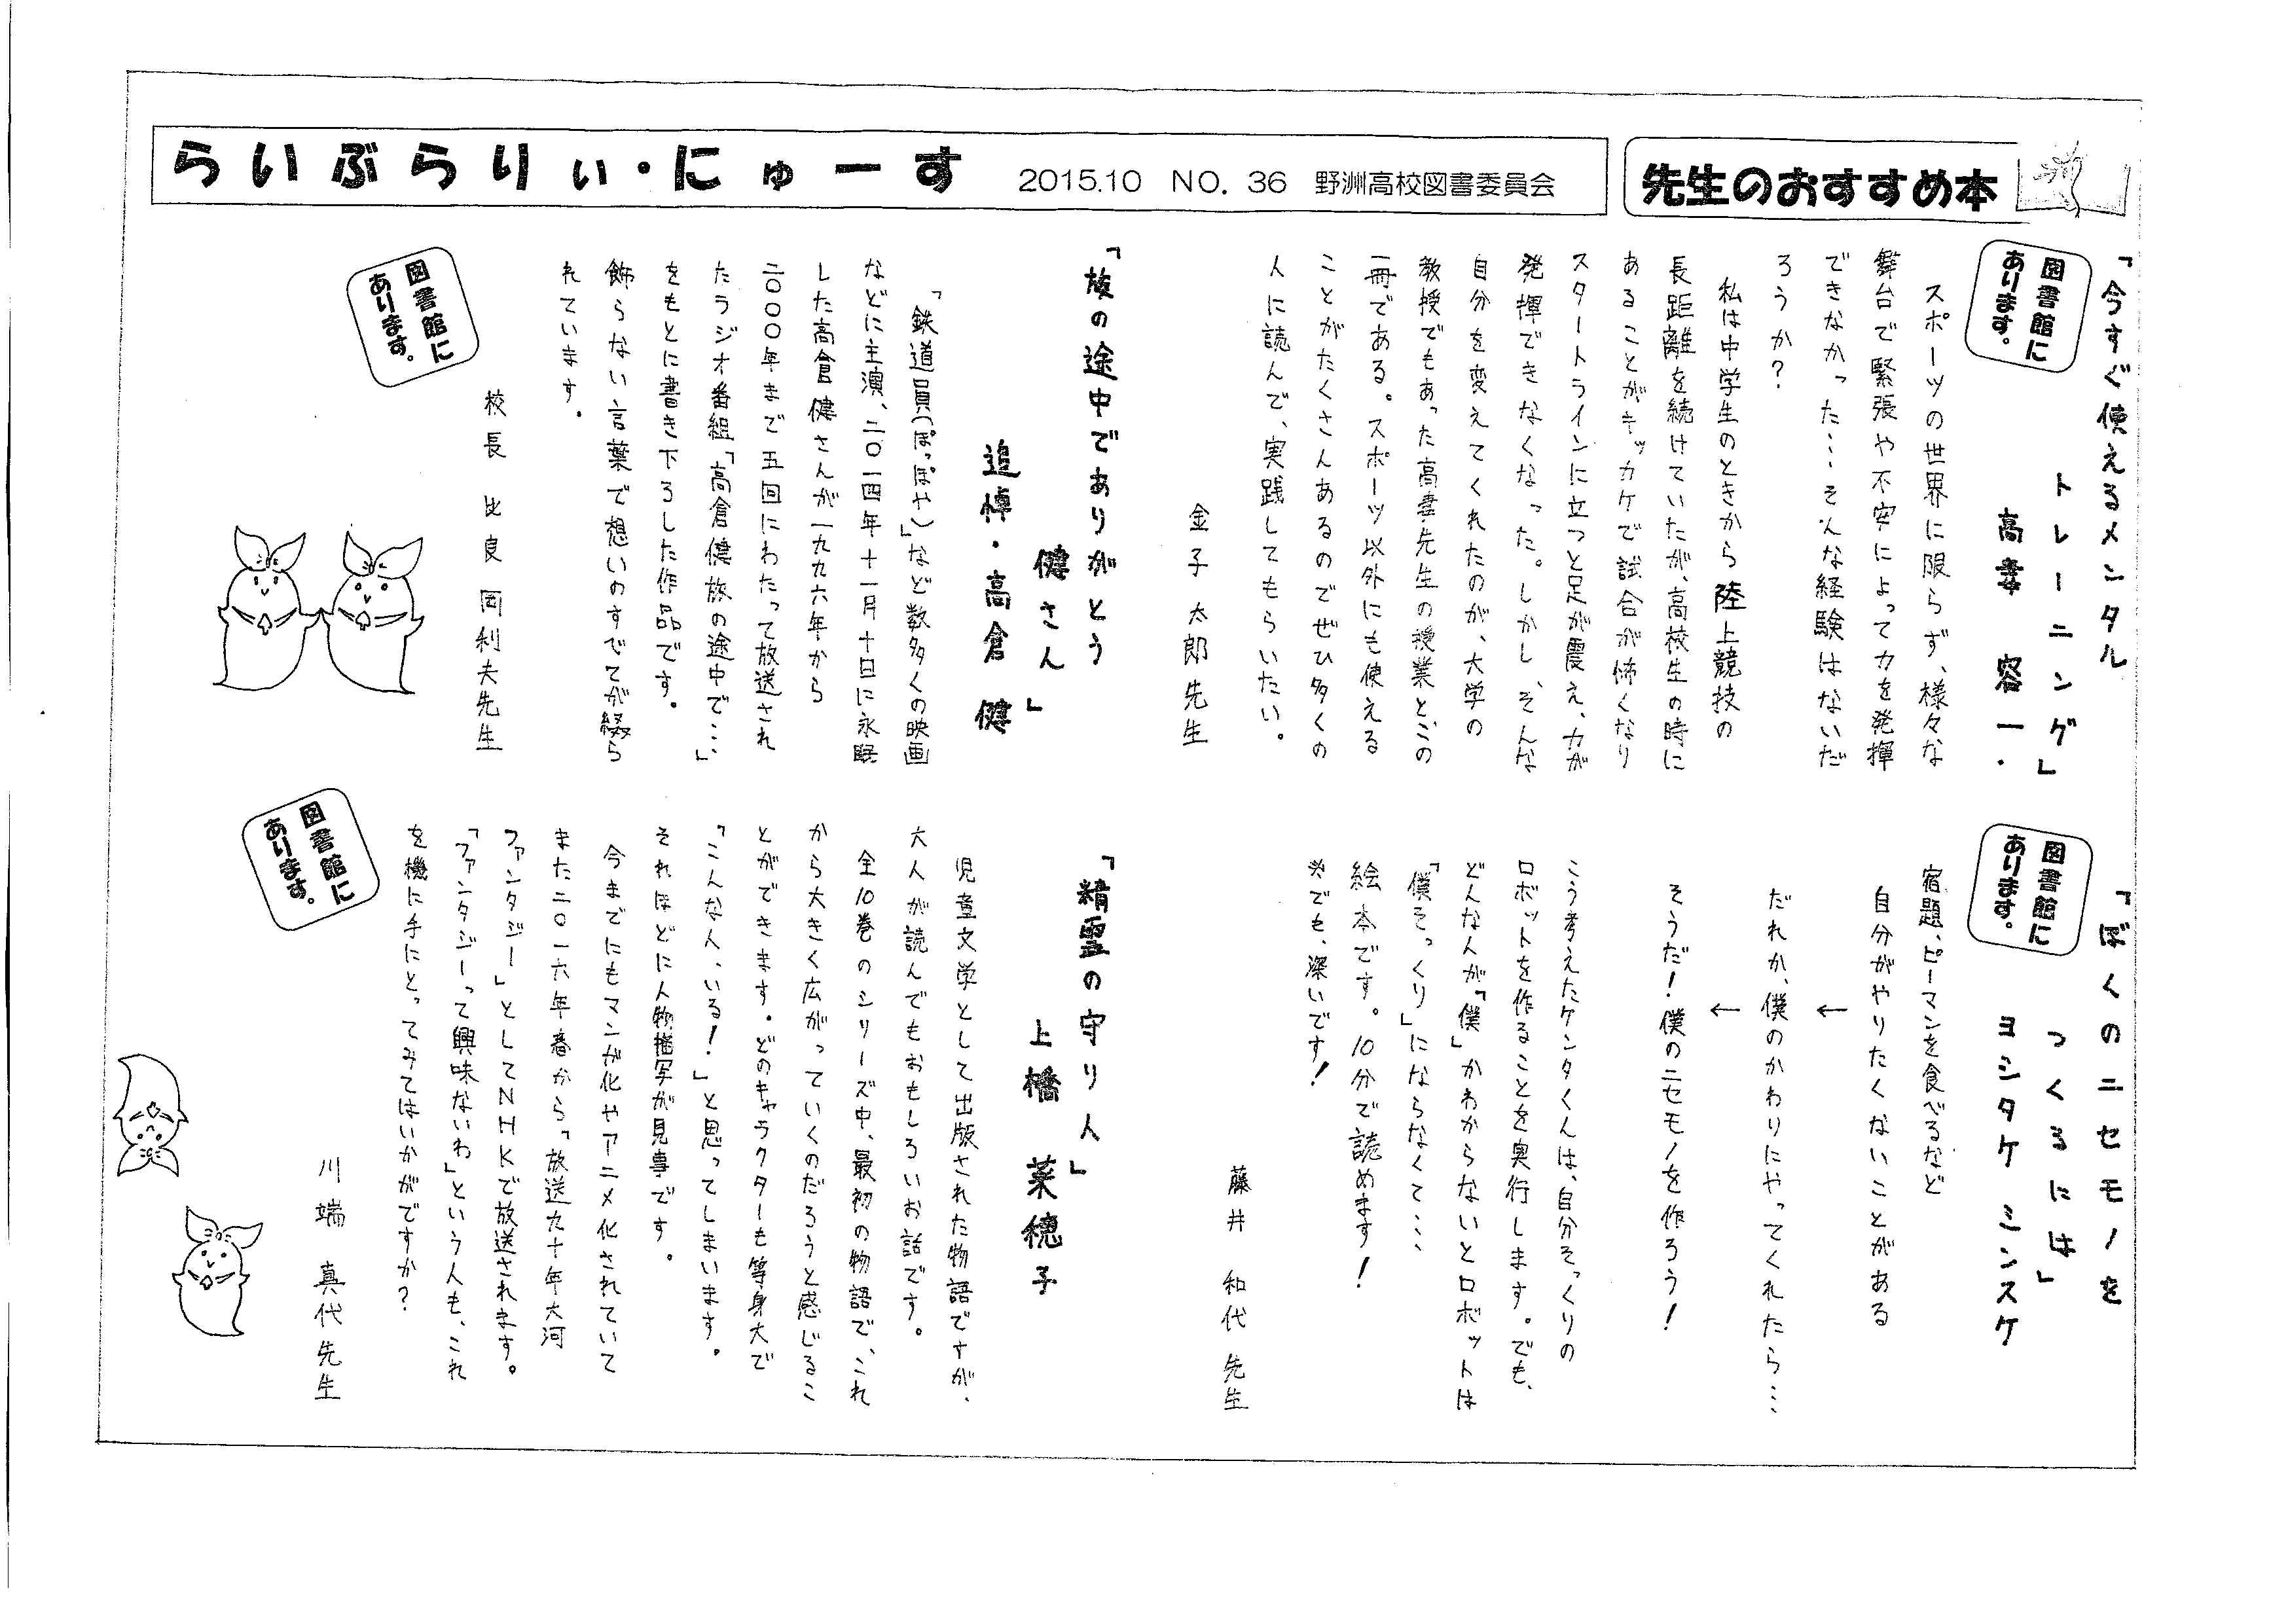 らいぶらりぃ・にゅーす 2015.10 NO. 36 野洲高校図書委員会
先生のおすすめ本
「今すぐ使えるメンタル
トレーニング」
高妻 容一
図書館に
あります。
スポーツの世界に限らず、様々な
舞台で緊張や不安によって力を発揮
できなかった…そんな経験はないだ
ろうか？
私は中学生のときから陸上競技の
長距離を続けていたが、高校生の時に
あることがキッカケで試合が怖くなり
スタートラインに立つと足が震え、力が
発揮できなくなった。しかし、そんな
自分を変えてくれたのが、大学の
教授でもあった高妻先生の授業と、この
一冊である。スポーツ以外にも使える
ことがたくさんあるのでぜひ多くの
人に読んで、実践してもらいたい。
金子 太郎先生
「旅の途中でありがとう
健さん」
追悼・高倉 健
「鉄道員(ぽっぽや)」など数多くの映画
などに主演、二〇一四年十一月十日に永眠
した高倉健さんが一九九六年から
二〇〇〇年まで五回にわたって放送され
たラジオ番組「高倉健旅の途中で…」
をもとに書き下ろした作品です。
飾らない言葉で想いのすべてが綴ら
れています。
校長 比良岡利夫先生
図書館に
あります。
「ぼくのニセモノを
つくるには」
ヨシタケ シンスケ
図書館に
あります。
宿題、ピーマンを食べるなど
自分がやりたくないことがある
←
だれか、僕のかわりにやってくれたら…
←
そうだ！僕のニセモノを作ろう！
こう考えたケンタくんは、自分そっくりの
ロボットを作ることを実行します。でも、
どんな人が「僕」かわからないとロボットは
「僕そっくり」にならなくて…
絵本です。10分で読めます！
※でも、深いです！
藤井 和代先生
「精霊の守り人」
上橋 菜穂子
児童文学として出版された物語ですが、
大人が読んでもおもしろいお話です。
全10巻のシリーズ中、最初の物語で、これ
から大きく広がっていくのだろうと感じるこ
とができます。どのキャラクターも等身大で
「こんな人、いる！」と思ってしまいます。
それほどに人物描写が見事です。
今までにもマンガ化やアニメ化されていて
また二〇一六年春から「放送九十年大河
ファンタジー」としてNHKで放送されます。
「ファンタジーって興味ないわ」という人も、これ
を機に手にとってみてはいかがですか？
川端 真代先生
図書館に
あります。